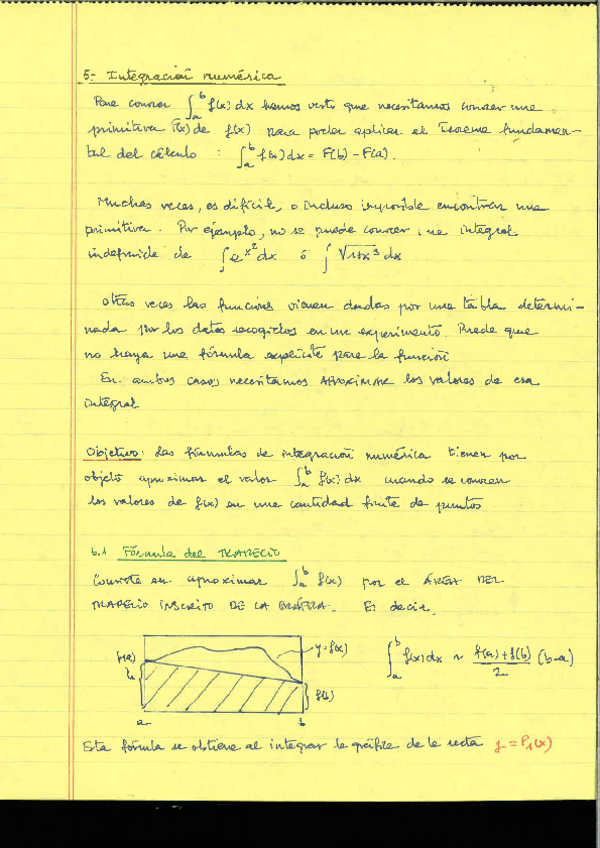 5.- Integración numérica
Para conocer ∫_a^b f(x) dx hemos visto que necesitamos conocer una
primitiva F(x) de f(x) para poder aplicar el Teorema fundamen-
tal del cálculo : ∫_a^b f(x) dx = F(b) - F(a).
Muchas veces, es difícil, o incluso imposible encontrar una
primitiva. Por ejemplo, no se puede conocer una integral
indefinida de ∫ e^{x^2} dx ó ∫ √(1+x^3) dx
Otras veces las funciones vienen dadas por una tabla determi-
nada por los datos recogidos en un experimento. Puede que
no haya una fórmula explícita para la función
En ambos casos necesitamos APROXIMAR los valores de esa
integral
Objetivo: Las fórmulas de integración numérica tienen por
objeto aproximar el valor ∫_a^b f(x) dx cuando se conocen
los valores de f(x) en una cantidad finita de puntos
6.1 Fórmula del TRAPECIO
Consiste en aproximar ∫_a^b f(x) por el ÁREA DEL
TRAPECIO INSCRITO DE LA GRÁFICA. Es decir,
f(a) y=f(x) ∫_a^b f(x) dx ~ (f(a)+f(b))/2 (b-a)
f(b)
a b
Esta fórmula se obtiene al integrar la gráfica de la recta y = P₁(x)